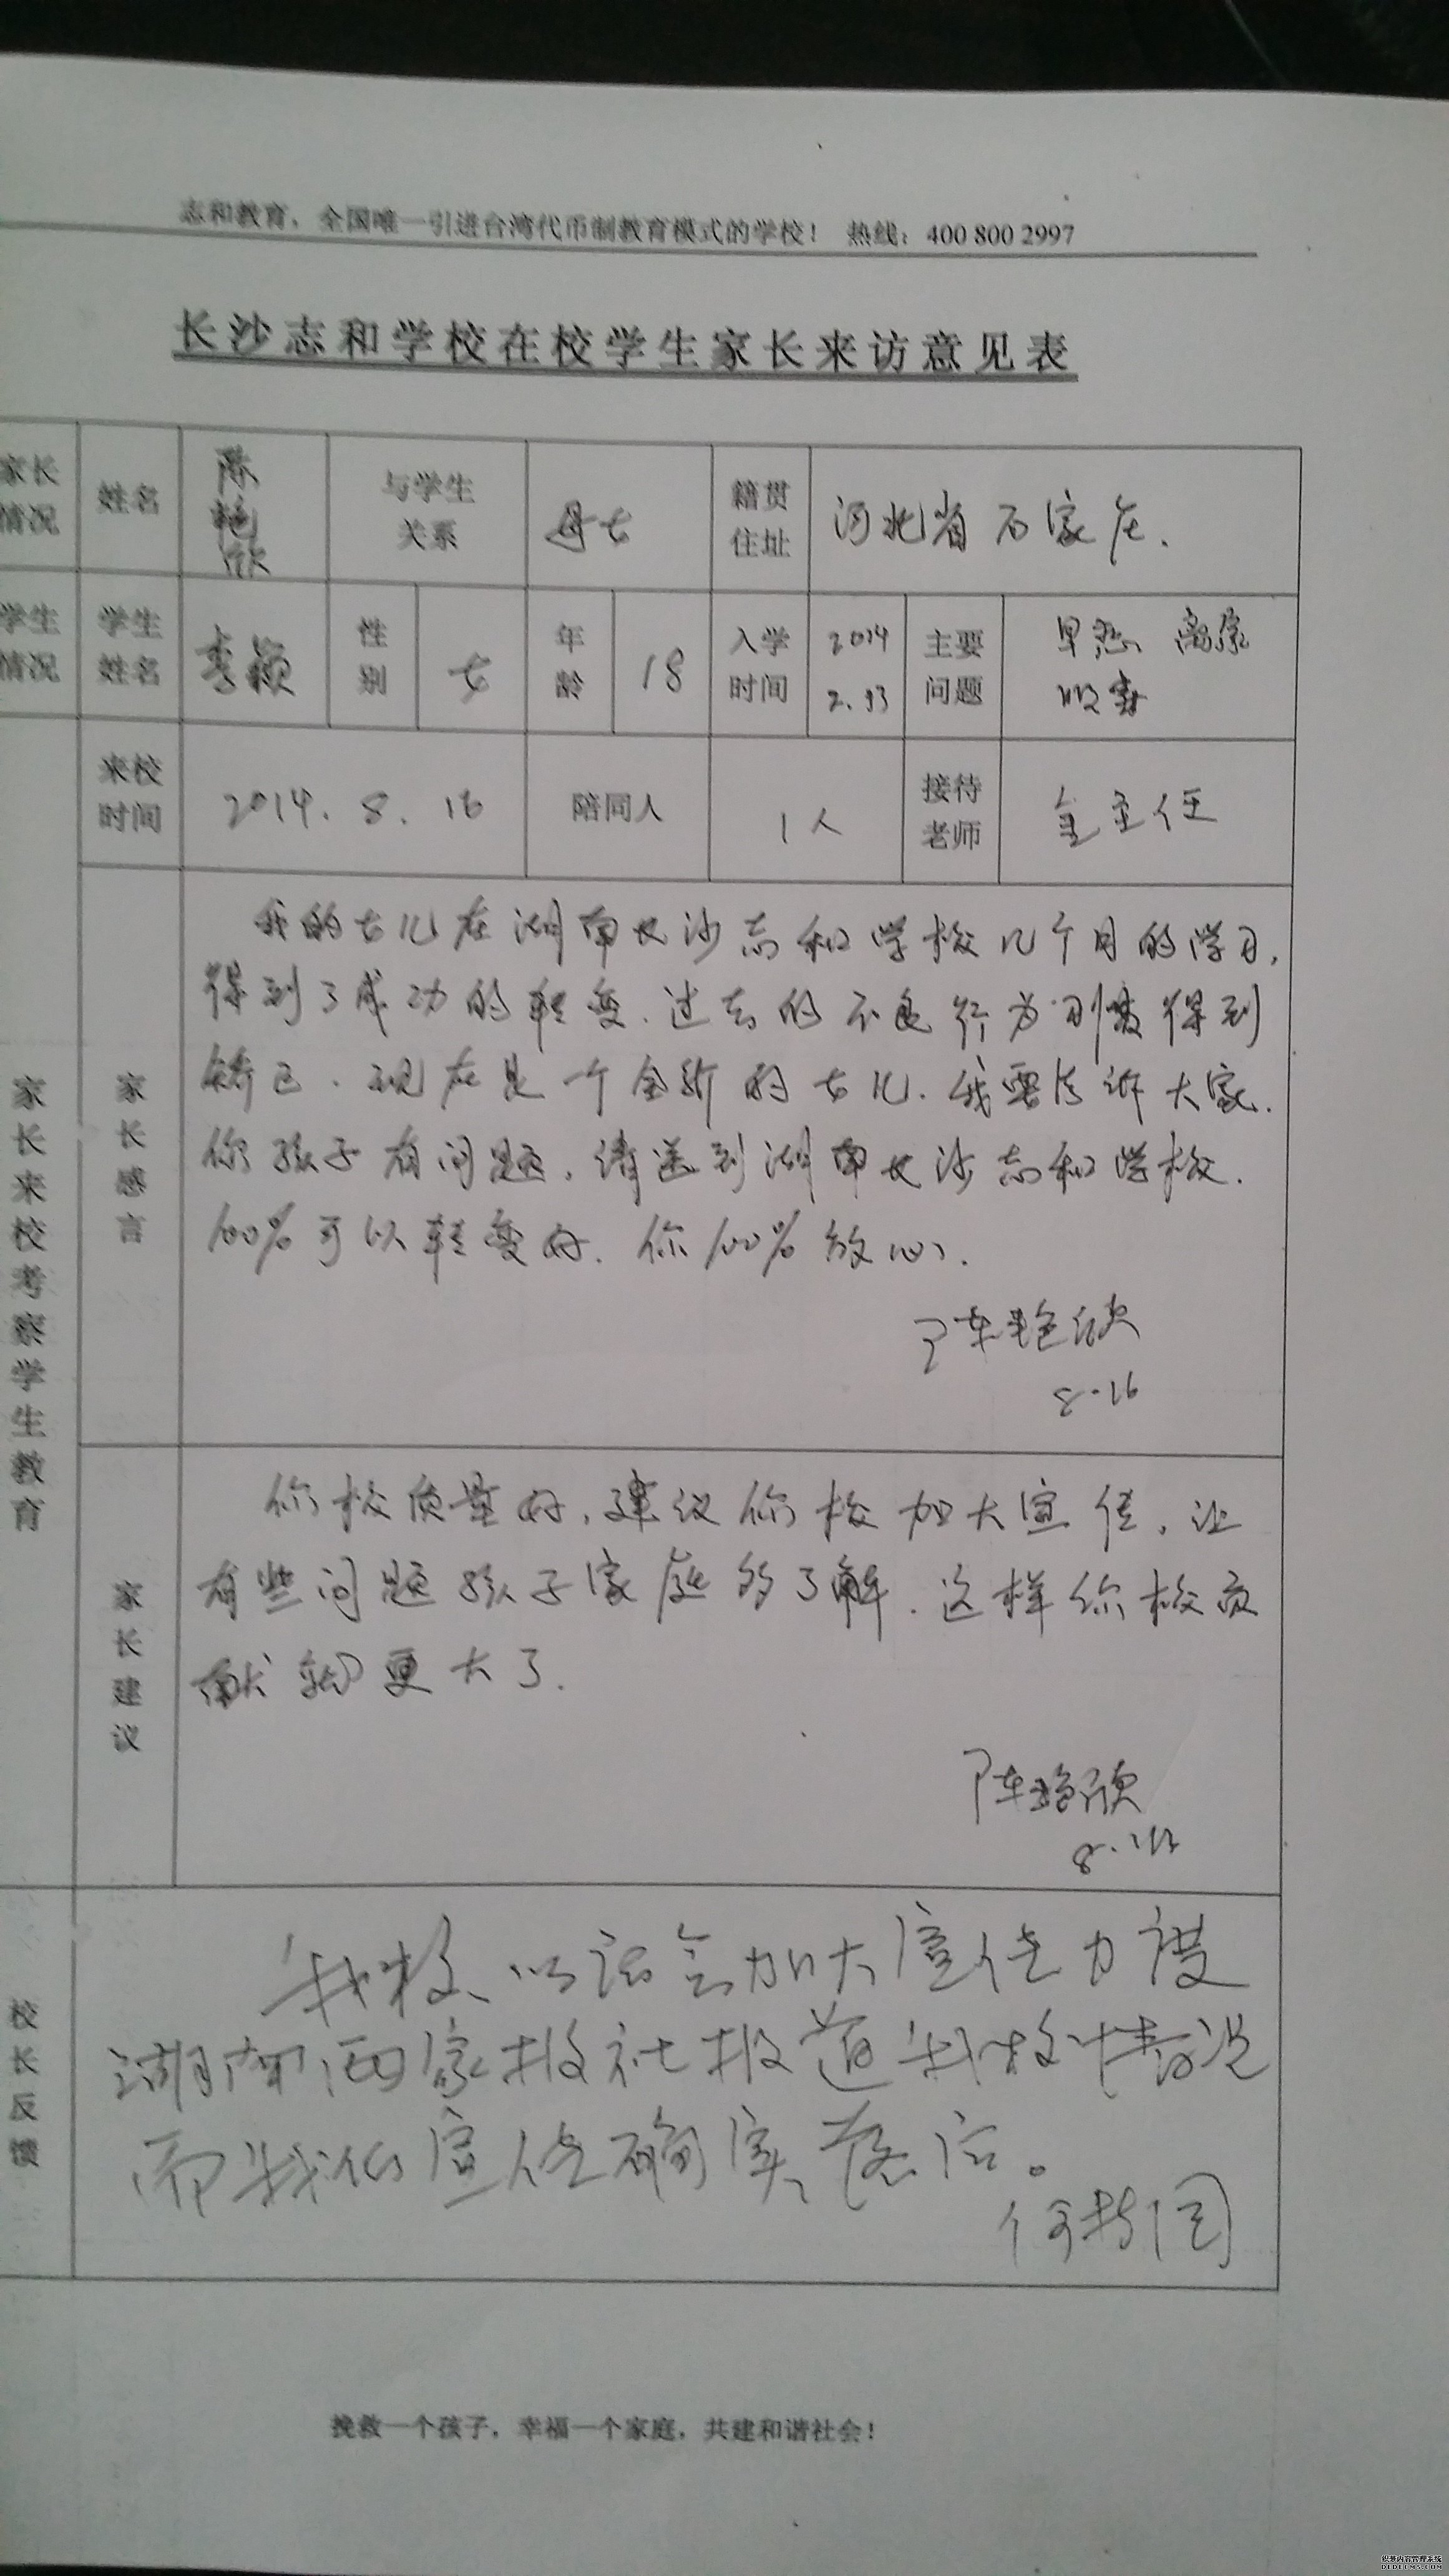 志和教育，全国唯一引进台湾代币制教育模式的学校！ 热线：400 800 2997
长沙志和学校在校学生家长来访意见表
家长情况 姓名 陈艳欣 与学生关系 母女 籍贯住址 河北省石家庄.
学生情况 学生姓名 李颖 性别 女 年龄 18 入学时间 2014 2. 主要问题 早恋 离家
来校时间 2014.8.16 陪同人 1人 接待老师 金主任
家长来校考察学生教育
家长感言
我的女儿在湖南长沙志和学校几个月的学习,
得到了成功的转变.过去的不良行为习惯得到
矫正.现在是一个全新的女儿.我要告诉大家.
你孩子有问题,请送到湖南长沙志和学校.
100%可以转变好.你100%放心.
陈艳欣
8-16
家长建议
你校质量好,建议你校加大宣传,让
有些问题孩子家庭的了解.这样你校贡
献就更大了.
陈艳欣
校长反馈
我校以后会加大宣传力度
湖南四家报社报道我校情况
而我们宣传确实落后。
挽救一个孩子，幸福一个家庭，共建和谐社会！
织梦内容管理系统
DEDECMS.COM